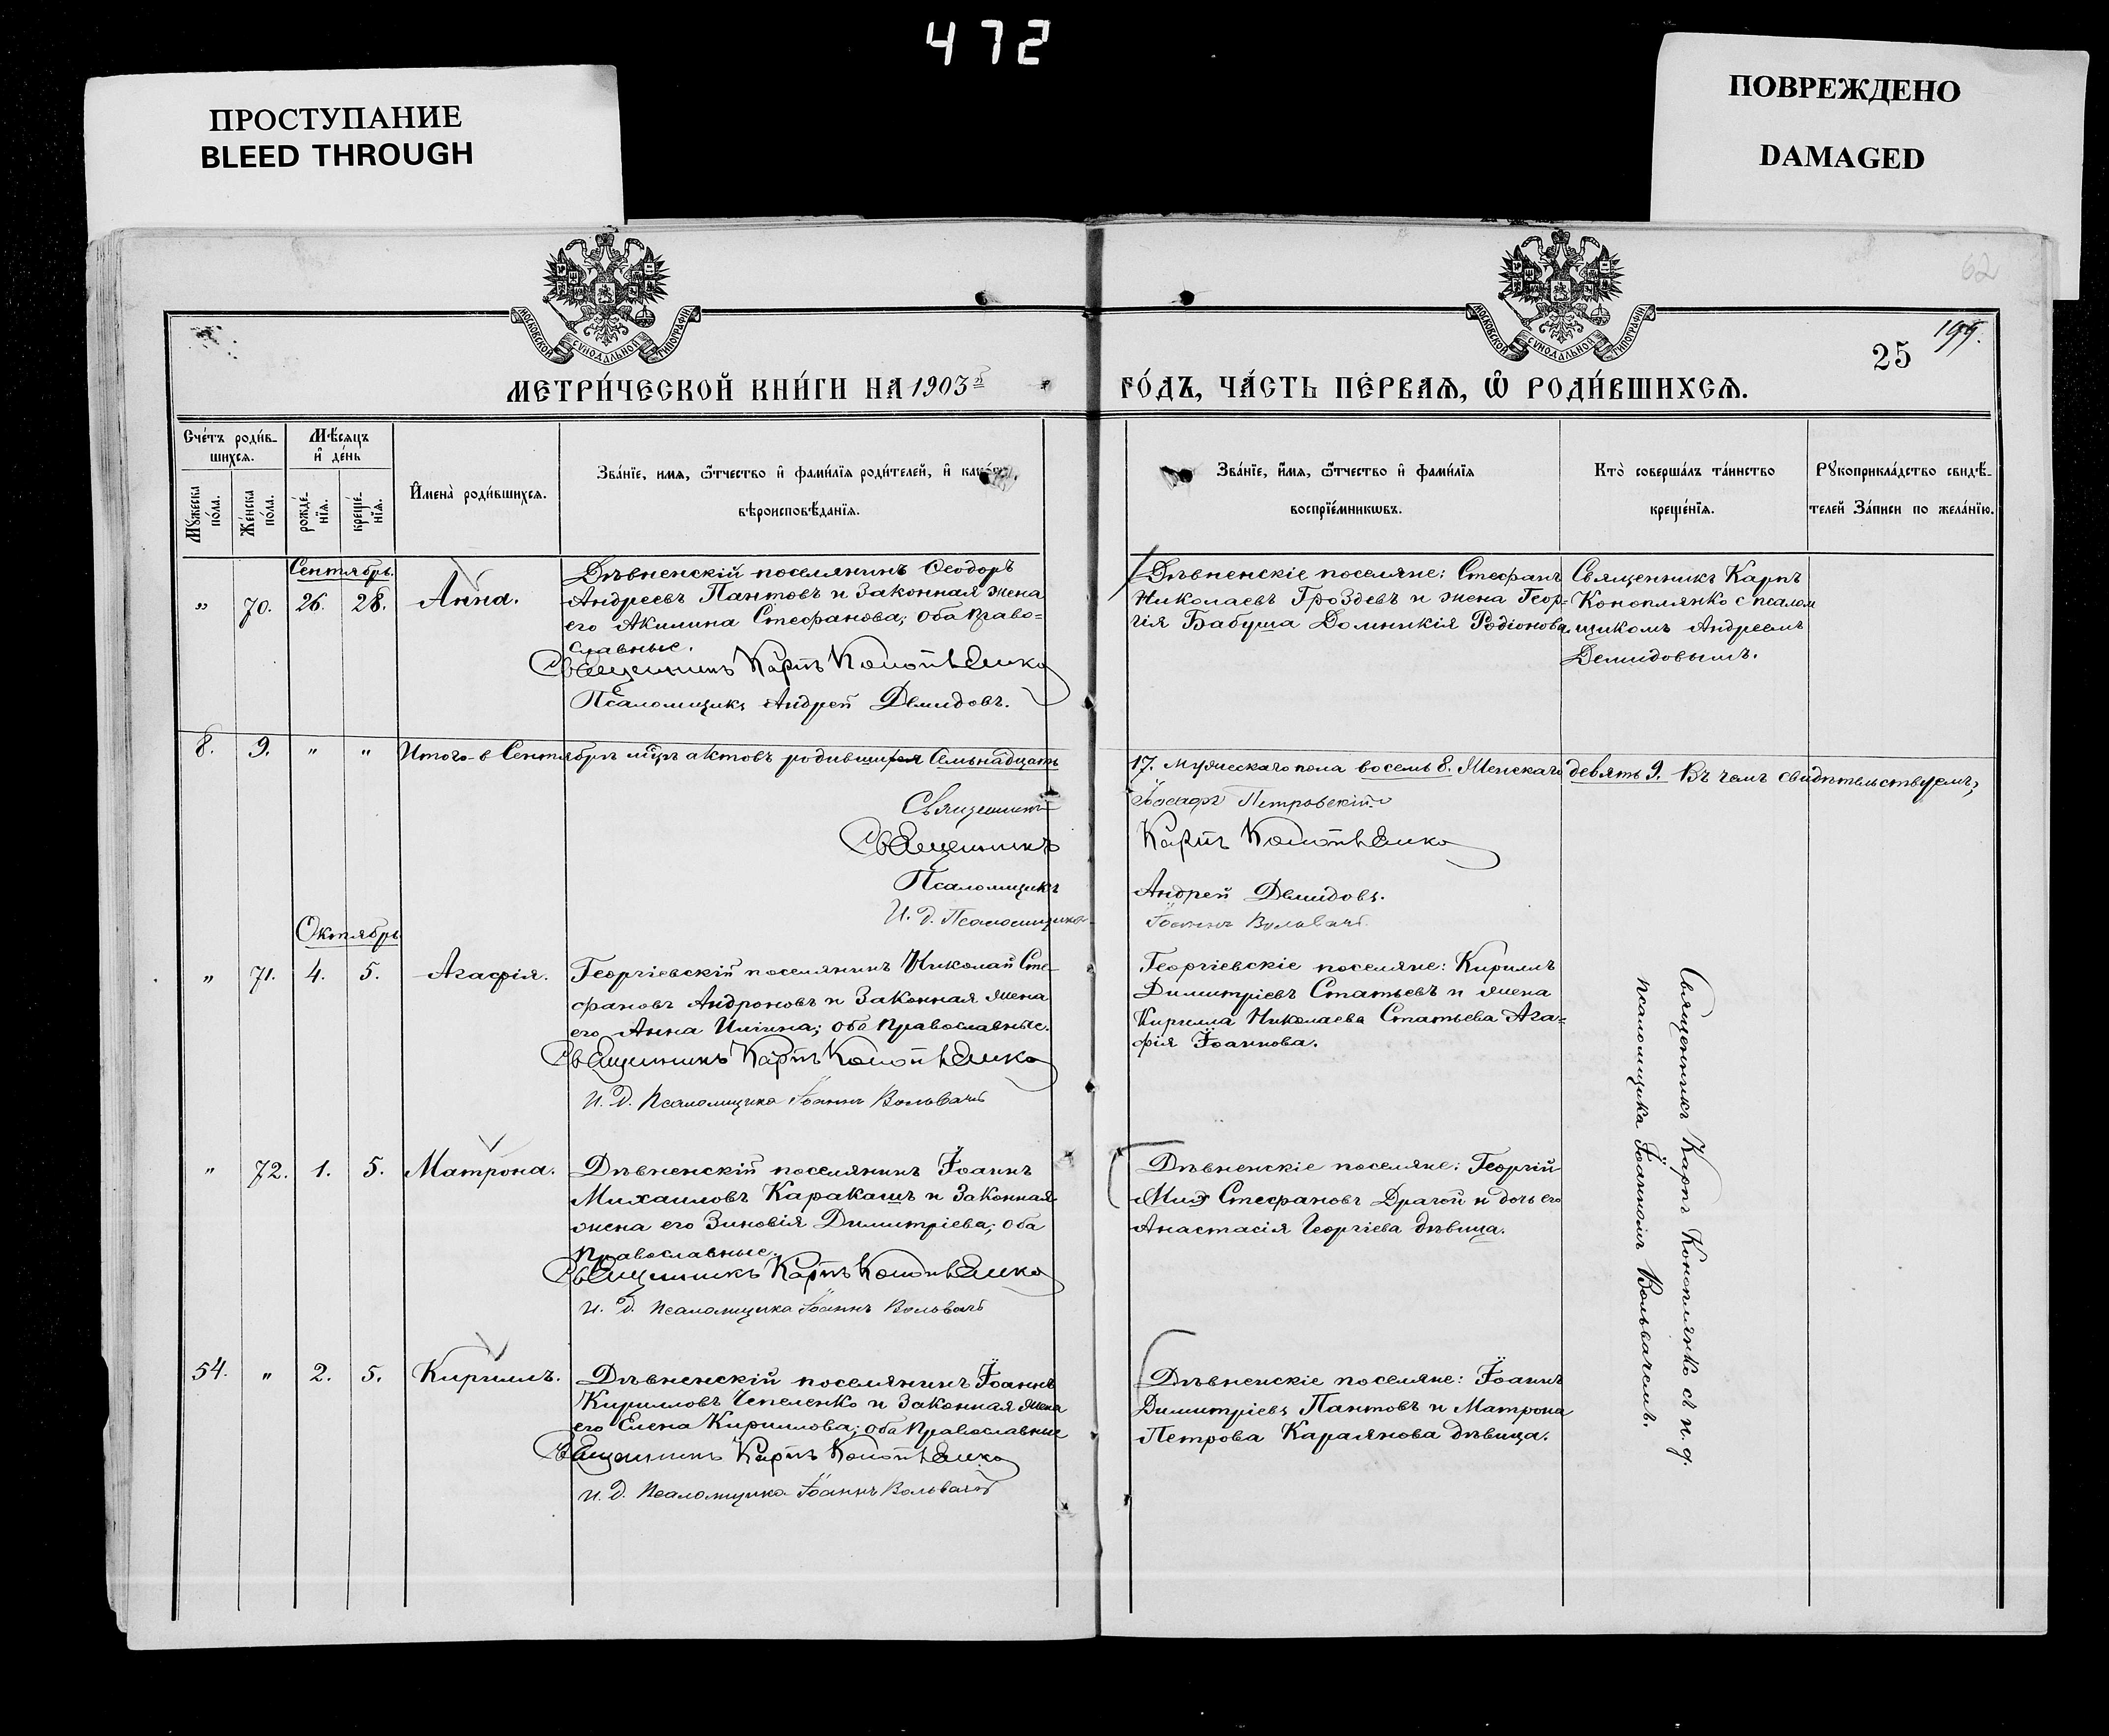 472
ПРОСТУПАНИЕ
BLEED THROUGH
ПОВРЕЖДЕНО
DAMAGED
62
199.
25
МОСКОВСКОЙ СѴНОДАЛЬНОЙ ТИПОГРАФІИ
МОСКОВСКОЙ СѴНОДАЛЬНОЙ ТИПОГРАФІИ
МЕТРИ́ЧЕСКОЙ КНИ́ГИ НА 1903й
ГО́ДЪ, ЧА́СТЬ ПЕ́РВАѦ, Ѡ҆ РОДИ́ВШИХСѦ.
Сче́тъ роди́в-
шихсѧ.
Мꙋжеска по́ла.
Же́нска по́ла.
Мѣ́сѧцъ
и҆ де́нь
рожде́-
нїѧ.
креще́-
нїѧ.
И҆мена̀ роди́вшихсѧ.
Зва́нїе, имѧ, ѻ҆́тчество и҆ фами́лїѧ роди́телей, и҆
вѣроисповѣ́данїѧ.
Зва́нїе, и҆́мѧ, ѻ҆́тчество и҆ фами́лїѧ
воспрїе́мникѡвъ.
Кто̀ соверша́лъ та́инство
креще́нїѧ.
Рꙋкоприкла́дство свидѣ́-
телей За́писи по жела́нїю.
Сентябрь.
„ 70. 26. 28. Анна.
Дѣвненскій поселянинъ Ѳеодоръ
Андреевъ Пантовъ и законная жена
его Акилина Стефанова; оба право-
славные.
Священникъ Карпъ Коноплянко
Псаломщикъ Андрей Демидовъ.
Дѣвненскіе поселяне: Стефанъ
Николаевъ Гроздевъ и жена Геор-
гія Бабуша Домникія Родіонова.
Священникъ Карпъ
Коноплянко с псалом
щикомъ Андреемъ
Демидовымъ.
8. 9. „ „ Итого в Сентябрѣ мцѣ актовъ родившихся Семьнадцать
17. Мужескаго пола восемь 8. Женскаго девять 9. Въ чемъ свидѣтельствуемъ,
Священникъ Іоасафъ Петровскій
Священникъ Карпъ Коноплянко
Псаломщикъ Андрей Демидовъ.
И. д. Псаломщика Іоаннъ Вольвачъ
Октябрь
„ 71. 4. 5. Агафія.
Георгіевскій поселянинъ Николай Сте-
фановъ Андроновъ и законная жена
его Анна Иліина; оба православные.
Священникъ Карпъ Коноплянко
И. д. Псаломщика Іоаннъ Вольвачъ
Георгіевскіе поселяне: Кириллъ
Димитріевъ Статьевъ и жена
Кирилла Николаева Статьева Ага-
фія Іоаннова.
Священникъ Карпъ Коноплянко съ и. д.
псаломщика Іоанномъ Вольвачемъ.
„ 72. 1. 5. Матрона.
Дѣвненскій поселянинъ Іоаннъ
Михаиловъ Каракашъ и законная
жена его Зиновія Димитріева; оба
православные.
Священникъ Карпъ Коноплянко
И. д. Псаломщика Іоаннъ Вольвачъ
Дѣвненскіе поселяне: Георгій
Мих Стефановъ Драгой и дочь его
Анастасія Георгіева дѣвица.
54. „ 2. 5. Кириллъ.
Дѣвненскій поселянинъ Іоаннъ
Кирилловъ Чепеленко и законная жена
его Елена Кириллова; оба православные
Священникъ Карпъ Коноплянко
И. д. Псаломщика Іоаннъ Вольвачъ
Дѣвненскіе поселяне: Іоаннъ
Димитріевъ Пантовъ и Матрона
Петрова Караянова дѣвица.